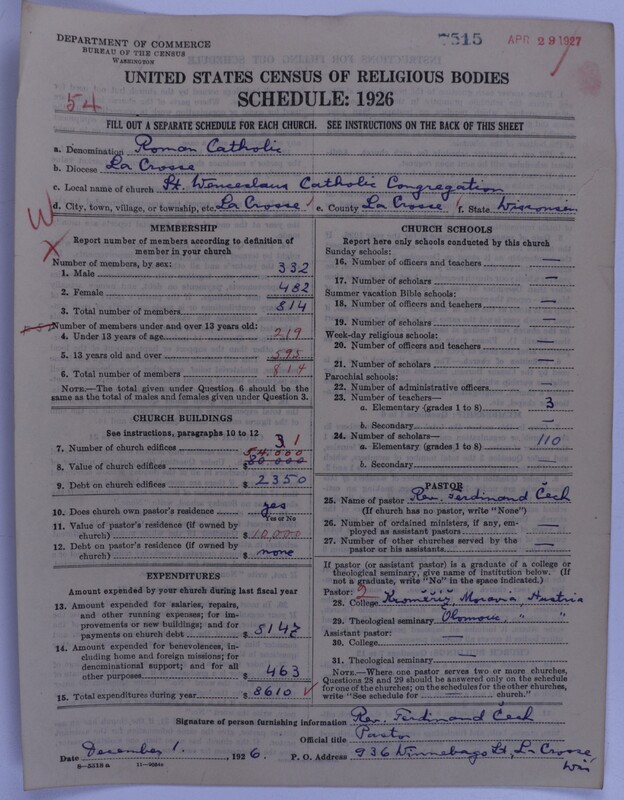 DEPARTMENT OF COMMERCE
BUREAU OF THE CENSUS
WASHINGTON
7515 APR 29 1927
UNITED STATES CENSUS OF RELIGIOUS BODIES
SCHEDULE: 1926
54
FILL OUT A SEPARATE SCHEDULE FOR EACH CHURCH. SEE INSTRUCTIONS ON THE BACK OF THIS SHEET
a. Denomination Roman Catholic
b. Diocese La Crosse
c. Local name of church St. Wenceslaus Catholic Congregation
d. City, town, village, or township, etc. La Crosse e. County La Crosse f. State Wisconsin
W
X
MEMBERSHIP
Report number of members according to definition of
member in your church
Number of members, by sex:
1. Male 332
2. Female 482
3. Total number of members 814
Number of members under and over 13 years old:
4. Under 13 years of age 219
5. 13 years old and over 595
6. Total number of members 814
NOTE.—The total given under Question 6 should be
same as the total of males and females given under Question 3.
CHURCH BUILDINGS
See instructions, paragraphs 10 to 12
7. Number of church edifices 3 1
54,000
8. Value of church edifices $80 000
9. Debt on church edifices $2350
10. Does church own pastor's residence? yes
Yes or No
11. Value of pastor's residence (if owned by
church) $10,000
12. Debt on pastor's residence (if owned by
church) $none
EXPENDITURES
Amount expended by your church during last fiscal year
13. Amount expended for salaries, repairs,
and other running expenses; for im-
provements or new buildings; and for
payments on church debt $8147
14. Amount expended for benevolences, in-
cluding home and foreign missions; for
denominational support; and for all
other purposes $463
15. Total expenditures during year $8610
CHURCH SCHOOLS
Report here only schools conducted by this church
Sunday schools:
16. Number of officers and teachers —
17. Number of scholars —
Summer vacation Bible schools:
18. Number of officers and teachers —
19. Number of scholars —
Week-day religious schools:
20. Number of officers and teachers —
21. Number of scholars —
Parochial schools:
22. Number of administrative officers —
23. Number of teachers—
a. Elementary (grades 1 to 8) 3
b. Secondary —
24. Number of scholars—
a. Elementary (grades 1 to 8) 110
b. Secondary —
PASTOR
25. Name of pastor Rev. Ferdinand Čech
(If church has no pastor, write "None")
26. Number of ordained ministers, if any, em-
ployed as assistant pastors —
27. Number of other churches served by the
pastor or his assistants —
If pastor (or assistant pastor) is a graduate of a college or
theological seminary, give name of institution below. (If
not a graduate, write "No" in the space indicated.)
Pastor: 2
28. College Kroměříž, Moravia, Austria
29. Theological seminary Olomouc, " "
Assistant pastor:
30. College —
31. Theological seminary —
NOTE.—Where one pastor serves two or more churches,
Questions 28 and 29 should be answered only on the schedule
for one of the churches; on the schedules for the other churches,
write "See schedule for — church."
Signature of person furnishing information Rev. Ferdinand Čech
Official title Pastor
Date December 1, 1926. P. O. Address 936 Winnebago St, La Crosse,
Wis
6—5518a 11—9024a